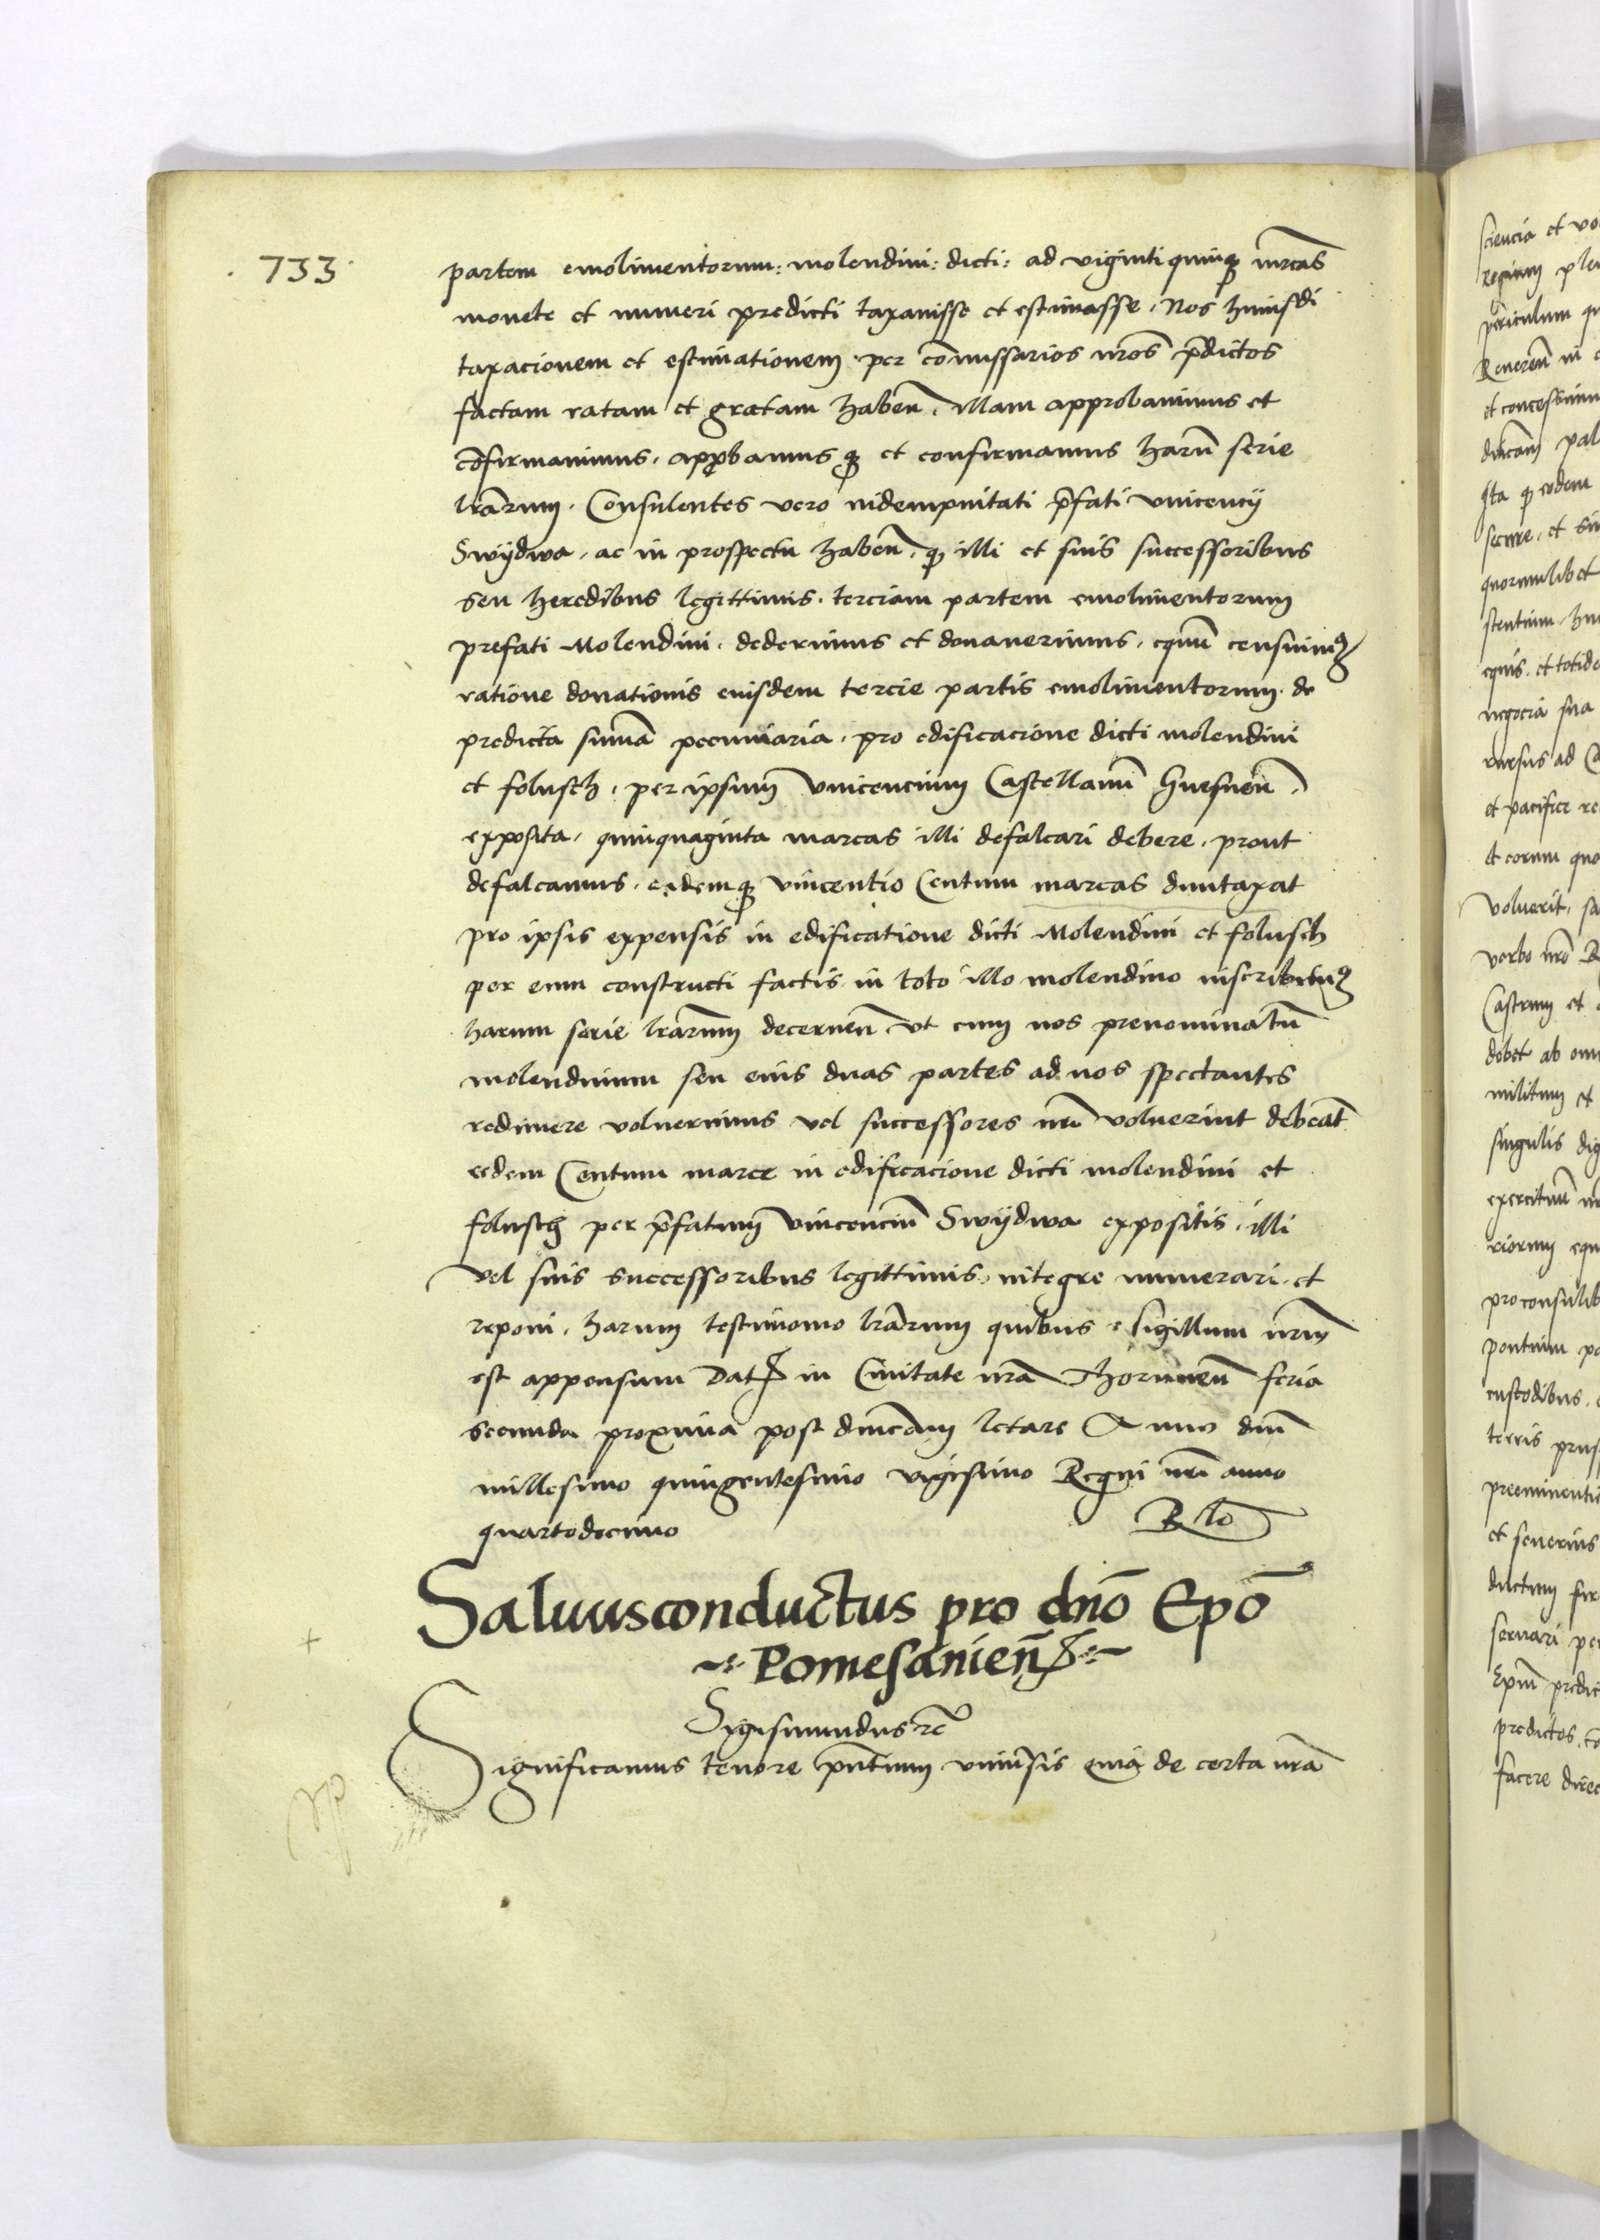 . 733 .
partem emolimentorum : molendini : dicti : ad viginti quinq mrcas
monete et numeri predicti taxauisse et estimasse . Nos huiusdi
taxacionem et estimationem per comissarios nros pdictos
factam ratam et gratam haben . illam approbauimus et
cofirmauimus . appbamus q et confirmamus harum serie
lrarum . Consulentes vero indempnitati pfati vincencij
Swydwa . ac in prospectu haben . q illi et suis successoribus
seu heredibus legittimis . terciam partem emolimentorum
prefati Molendini . dederimus et donauerimus . equum censuim9
ratione donationis eiusdem tercie partis emolimentorum . de
predicta suma pecuniaria . pro edificacione dicti molendini
et folusch . per ipsum vincencium Castellanum Gnesnen .
exposita . quinquaginta marcas illi defalcari debere . prout
defalcamus . eidemq vincentio Centum marcas duntaxat
pro ipsis expensis in edificatione dicti Molendini et folusch
per eum constructi factis in toto illo molendino inscribim9
harum serie lrarum decernen vt cum nos prenominatum
molendinum seu eius duas partes ad nos spectantes
redimere voluerimus vel successores nri voluerint debeat
eedem Centum marce in edificacione dicti molendini et
folusch per pfatum vincencium Swydwa expositis . illi
vel suis successoribus legittimis . integre numerari . et
reponi . harum testimonio lrarum quibus sigillum nrm
est appensum Dat in Ciuitate nra Thorunen feria
secunda proxima post dnicam letare Anno dni
millesimo quingentesimo vigesimo Regni nri anno
quartodecimo
Saluusconductus pro dno Epo
Pomesanien
+
Sigismundus rc
Significamus tenore pntium vniuersis quia de certa nra
sciencia et vo
periculum qu
Reueren in
et concessimu
quorumlibet
negocia sua
rursus ad Ca
et pacifice re
et eorum quo
voluerit . sa
verbo nro R
Castrum et
debet ab om
militum et
singulis dig
proconsulib
custodibus .
terris prus
preeminenti
et seuerius
seruari pe
Epm predic
predictos . co
facere direc